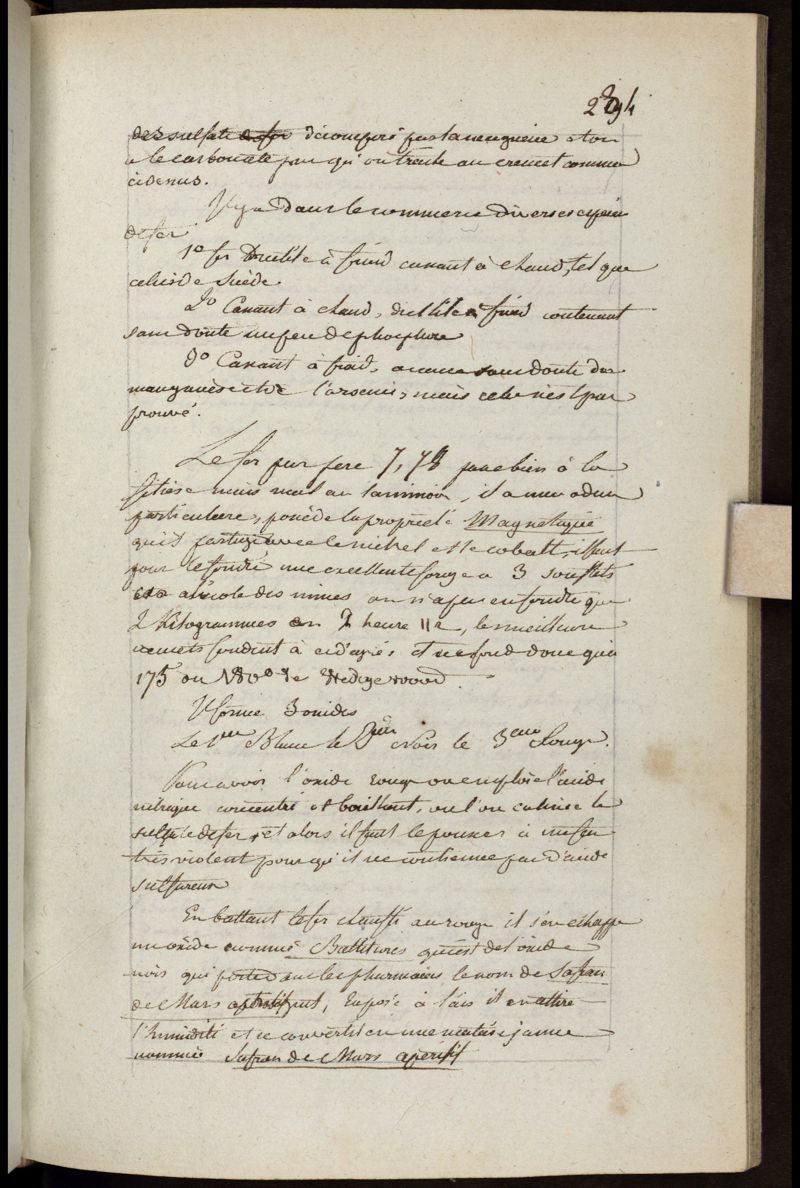 294
des sulfate de fer décomposé par la magnésie et on
a le carbonate pur qu'on traite au creuset comme
ci dessus.
Il y a dans le commerce diverses espèces
de fer
1º fer Ductile à froid cassant à chaud, tel que
celui de Suède.
2º Cassant à chaud, ductile à froid contenant
sans doute un peu de phosphore
3º Cassant à froid, à cause sans doute du
manganèse et de l'arsenic, mais cela n'est pas
prouvé.
Le fer pur pèse 7,78 passe bien à la
filière mais mal au laminoir, il a une odeur
particulière, possède la propriété Magnétique
qu'il partage avec le nickel et le cobalt, il faut
pour le fondre une excellente forge a 3 souflets
a l'école des mines on n'a pu en fondre que
2 Kilogrammes en 1 heure 1/2, les meilleurs
creusets fondent à ce degrés et ne fond donc qu'à
175 ou 180º de Wedgewood.
Il forme 3 oxides
Le 1er Blanc le 2ème Noir le 3eme Rouge.
Pour avoir l'oxide rouge on emploie l'acide
nitrique concentré et bouillant, ou l'on calcine le
sulfate de fer, et alors il faut le pousser à un feu
très violent pour qu'il ne contienne pas d'acide
sulfureux
En battant le fer chauffé au rouge il s'en échappe
un oxide nommé Battitures qui est de l'oxide
noir qui porte dans les pharmacies le nom de Safran
de Mars astringent, Exposé à l'air il en attire
l'humidité et se convertit en une matière jaune
nommée Safran de Mars apéritif